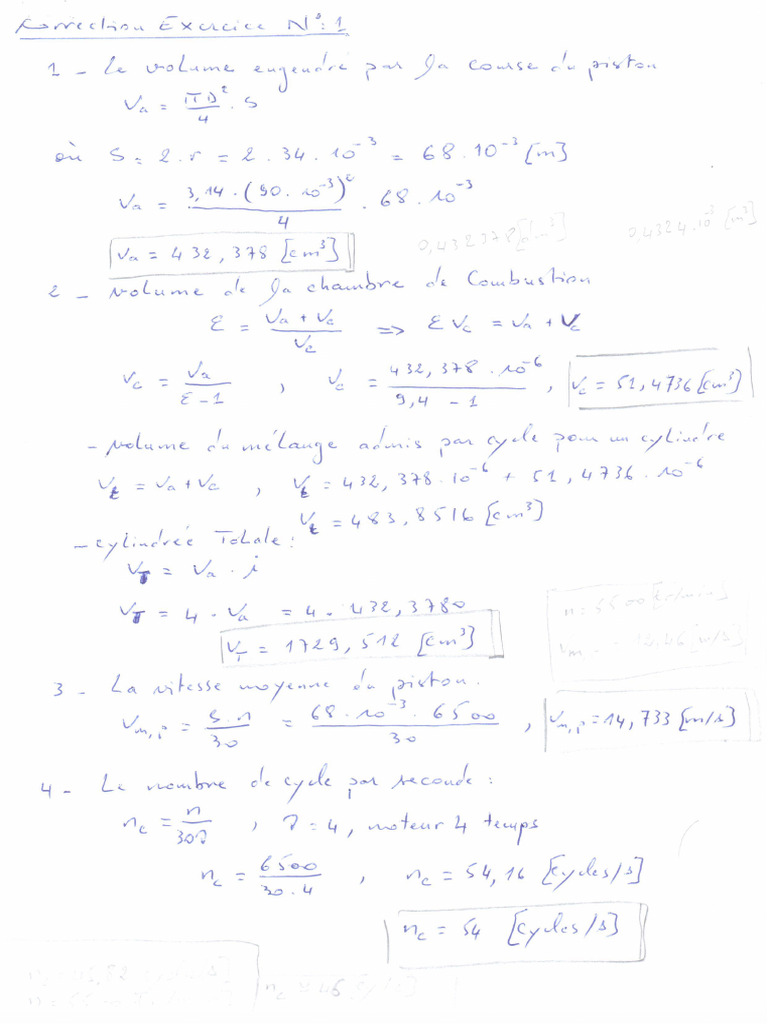 Correction Exercice N°:1
1 - Le volume engendré par la course du piston
Va = πD²/4 . S
où S = 2.r = 2.34.10⁻³ = 68.10⁻³ [m]
Va = 3,14.(90.10⁻³)²/4 . 68.10⁻³
Va = 432,378 [cm³]
0,4324.10⁻³ [m³]
2 - volume de la chambre de Combustion
ε = Va + Vc/Vc => εVc = Va + Vc
Vc = Va/ε-1 , Vc = 432,378.10⁻⁶/9,4 - 1 , Vc = 51,4736 [cm³]
- volume du mélange admis par cycle pour un cylindre
Vt = Va + Vc , Vt = 432,378.10⁻⁶ + 51,4736.10⁻⁶
Vt = 483,8516 [cm³]
- cylindrée Totale :
VT = Va . i
VT = 4 . Va = 4 . 432,3780
VT = 1729,512 [cm³]
n = 5500
3 - La vitesse moyenne du piston.
Vm,p = S.n/30 = 68.10⁻³.6500/30 , Vm,p = 14,733 [m/s]
4 - Le nombre de cycle par seconde :
nc = n/30τ , τ = 4, moteur 4 temps
nc = 6500/30.4 , nc = 54,16 [cycles/s]
nc = 54 [cycles/s]